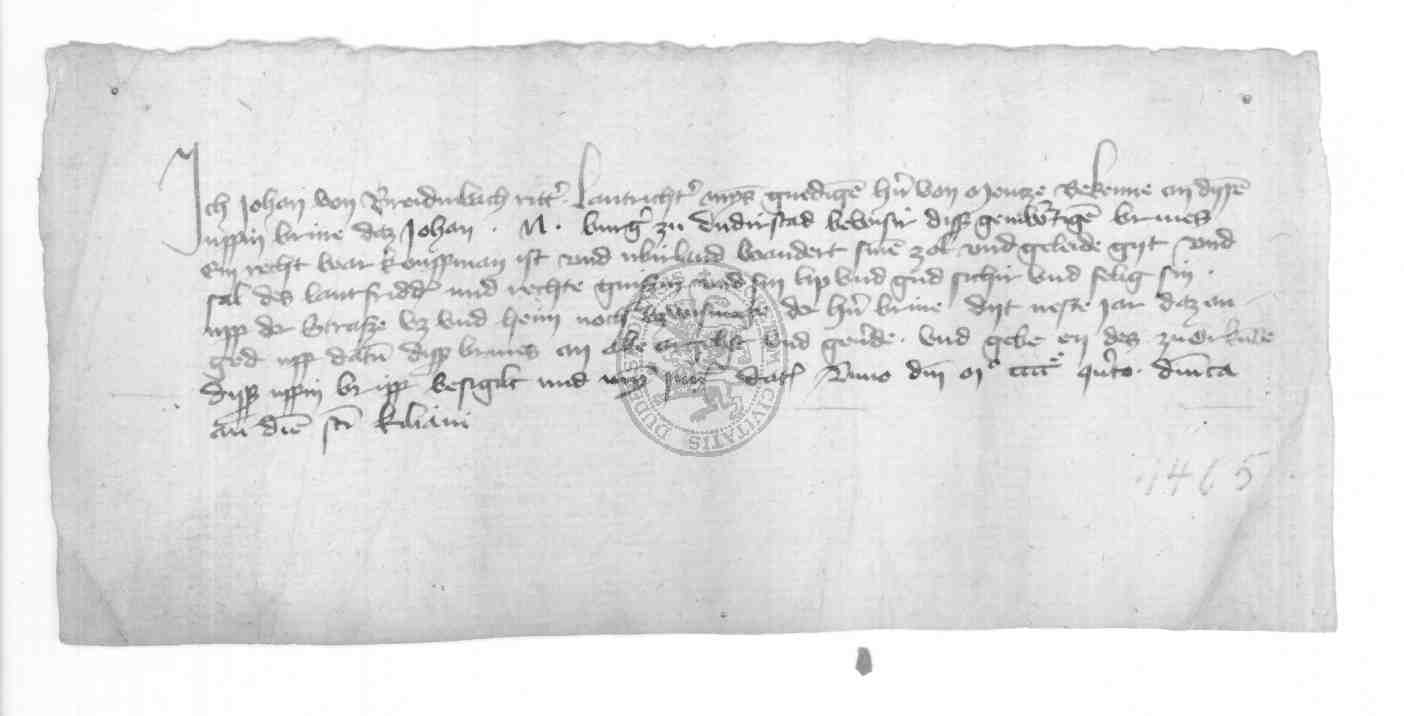 Ich Johan von Breidinbach ritt' lantricht' myns gnedigē hn̄ von Mentze Bekenne an dyssē
uffin brive daz Johan . N . burg' zu dudirstad bewisir diss geinw'tigē brives
ein recht war kouffman ist und ubir land wandert sinē zol und geleide gyt und
sal des lantfridd' und rechte und sin lip und gud sichir und felig sin
uff der strasze uz und heim noch der hn̄ brive dyt neste jar daz an
ged uff datū diss brives an alle und gev'de . und gebe en des zu orkunde
dissz uffin br besigilt und Dat' Anno dm̄ Mº cccc qn̄to dm̄ca
an̄ diē scī kiliani
1465
CIVITATIS DUDE